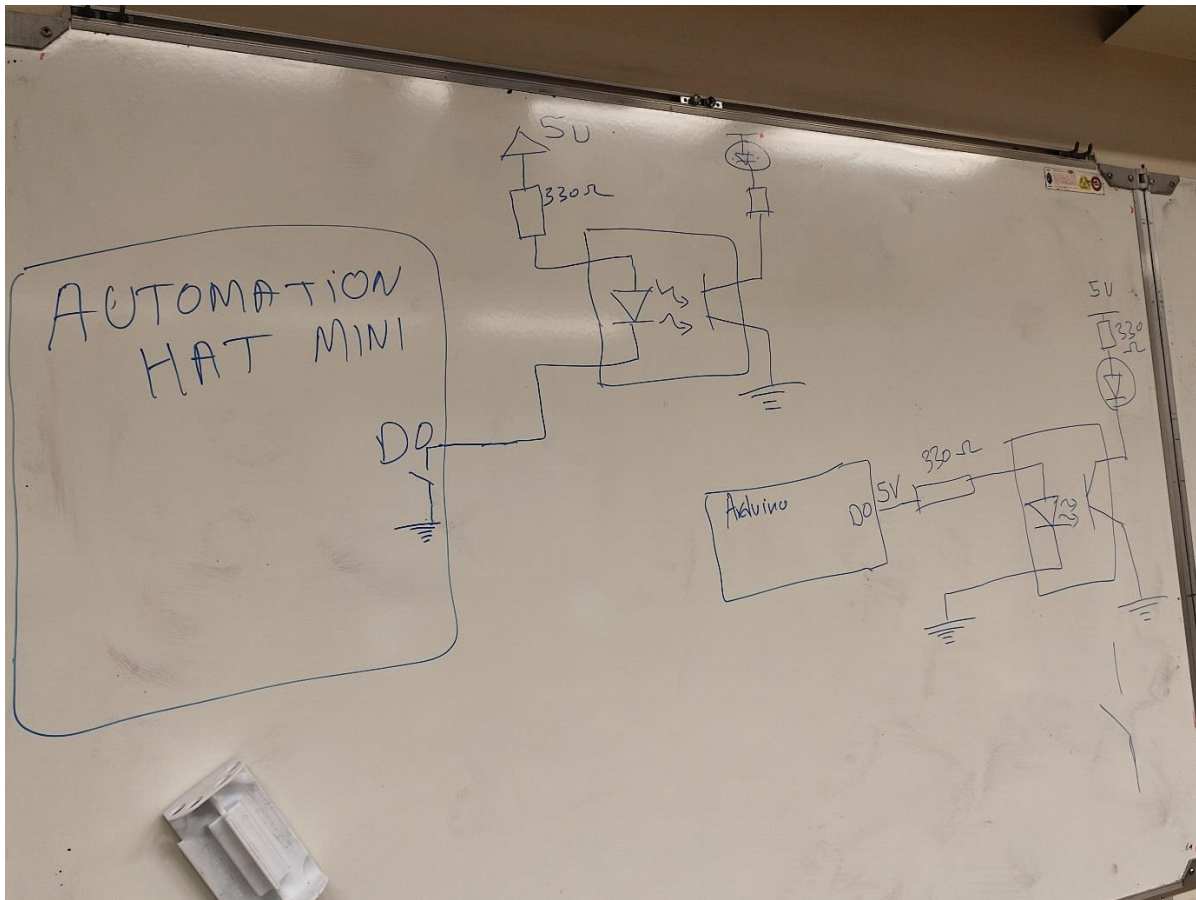 5V
330Ω
AUTOMATION
HAT MINI
DO
5V
330
Ω
330Ω
Arduino
DO
5V